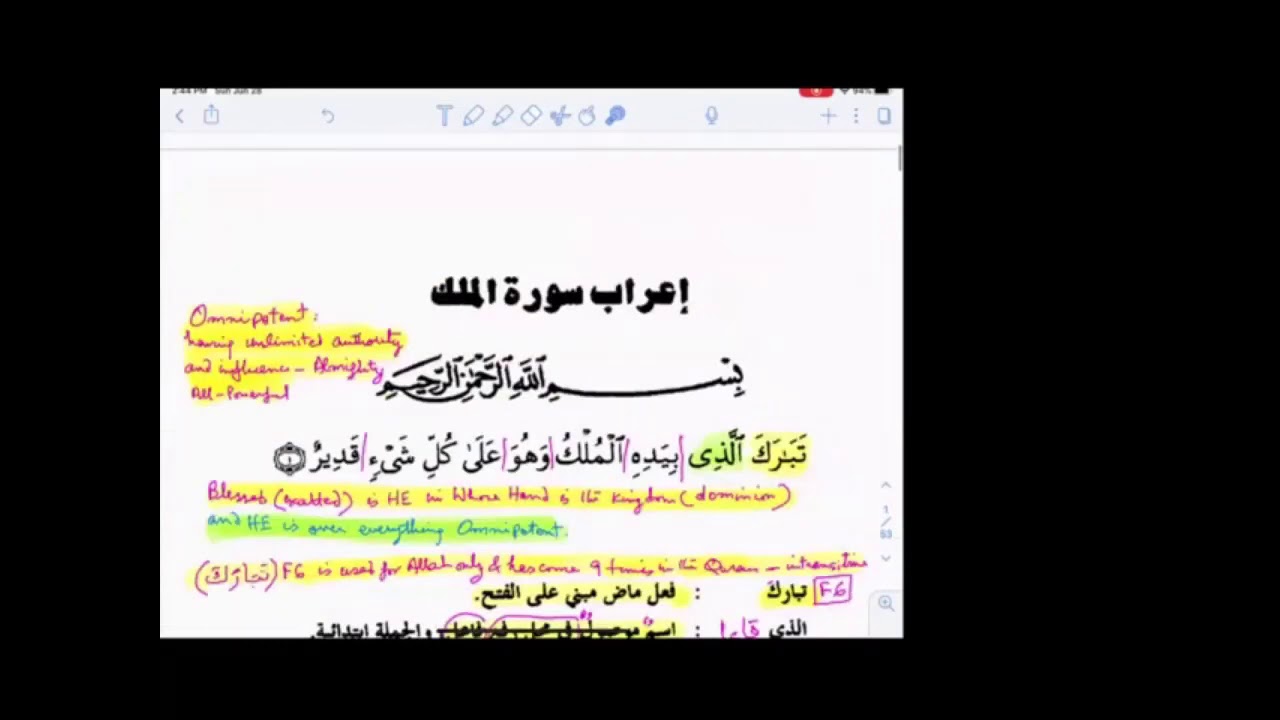 2:44 PM Sun Jun 28 94%
إعراب سورة الملك
Omnipotent:
having unlimited authority
and influence - Almighty
All-Powerful
بِسْمِ ٱللَّهِ ٱلرَّحْمَٰنِ ٱلرَّحِيمِ
تَبَٰرَكَ ٱلَّذِى بِيَدِهِ ٱلْمُلْكُ وَهُوَ عَلَىٰ كُلِّ شَىْءٍ قَدِيرٌ ١
Blessed (exalted) is HE in Whose Hand is the Kingdom (dominion)
and HE is over everything Omnipotent.
(تَبَارَكَ) F6 is used for Allah only & has come 9 times in the Quran - intransitive
F6 تبارك : فعل ماض مبني على الفتح.
الذي : اسم موصول في محل رفع فاعل والجملة ابتدائية.
1
/
63